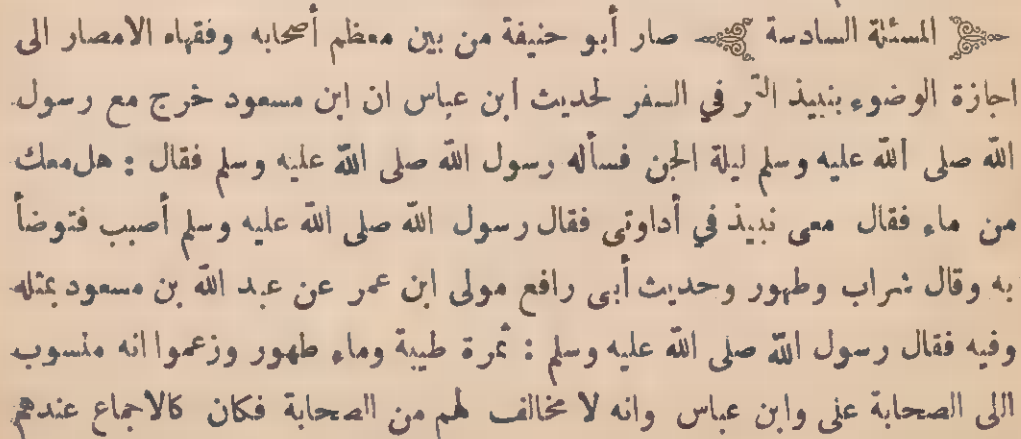 المسئلة السادسة صار أبو حنيفة من بين معظم أصحابه وفقهاء الامصار الى
اجازة الوضوء بنبيذ التمر في السفر لحديث ابن عباس ان ابن مسعود خرج مع رسول
الله صلى الله عليه وسلم ليلة الجن فسأله رسول الله صلى الله عليه وسلم فقال : هل معك
من ماء فقال معى نبيذ في أداوتى فقال رسول الله صلى الله عليه وسلم أصبب فتوضأ
به وقال شراب وطهور وحديث أبى رافع مولى ابن عمر عن عبد الله بن مسعود بمثله
وفيه فقال رسول الله صلى الله عليه وسلم : ثمرة طيبة وماء طهور وزعموا انه منسوب
الى الصحابة على وابن عباس وانه لا مخالف لهم من الصحابة فكان كالاجماع عندهم